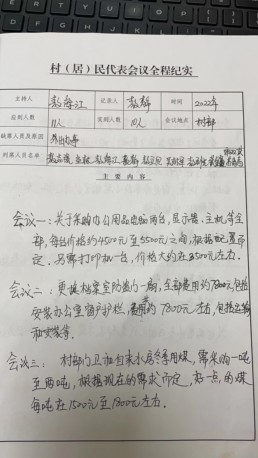 村（居）民代表会议全程纪实
主持人 彭海江 记录人 彭辉 时间 2022年
应到人数 11人 实到人数 10人 会议地点 村部
缺席人员及原因 外出办事
列席人员名单
主 要 内 容
会议一：关于采购办公用品电脑两台，显示器、主机等全
部，每台价格约4500元至5500元之间，根据配置而
定。另需打印机一台，价格大约在3500元左右。
会议二：更换档案室防盗门一扇，全部费用约7800元包括
安装办公室窗户护栏，费用约7800元左右，包括运输
和安装等。
会议三：村部门卫柜自来水过冬善用煤，需采购一吨
至两吨，根据现在的需求而定，好一点的煤
每吨在1500元至1800元左右。